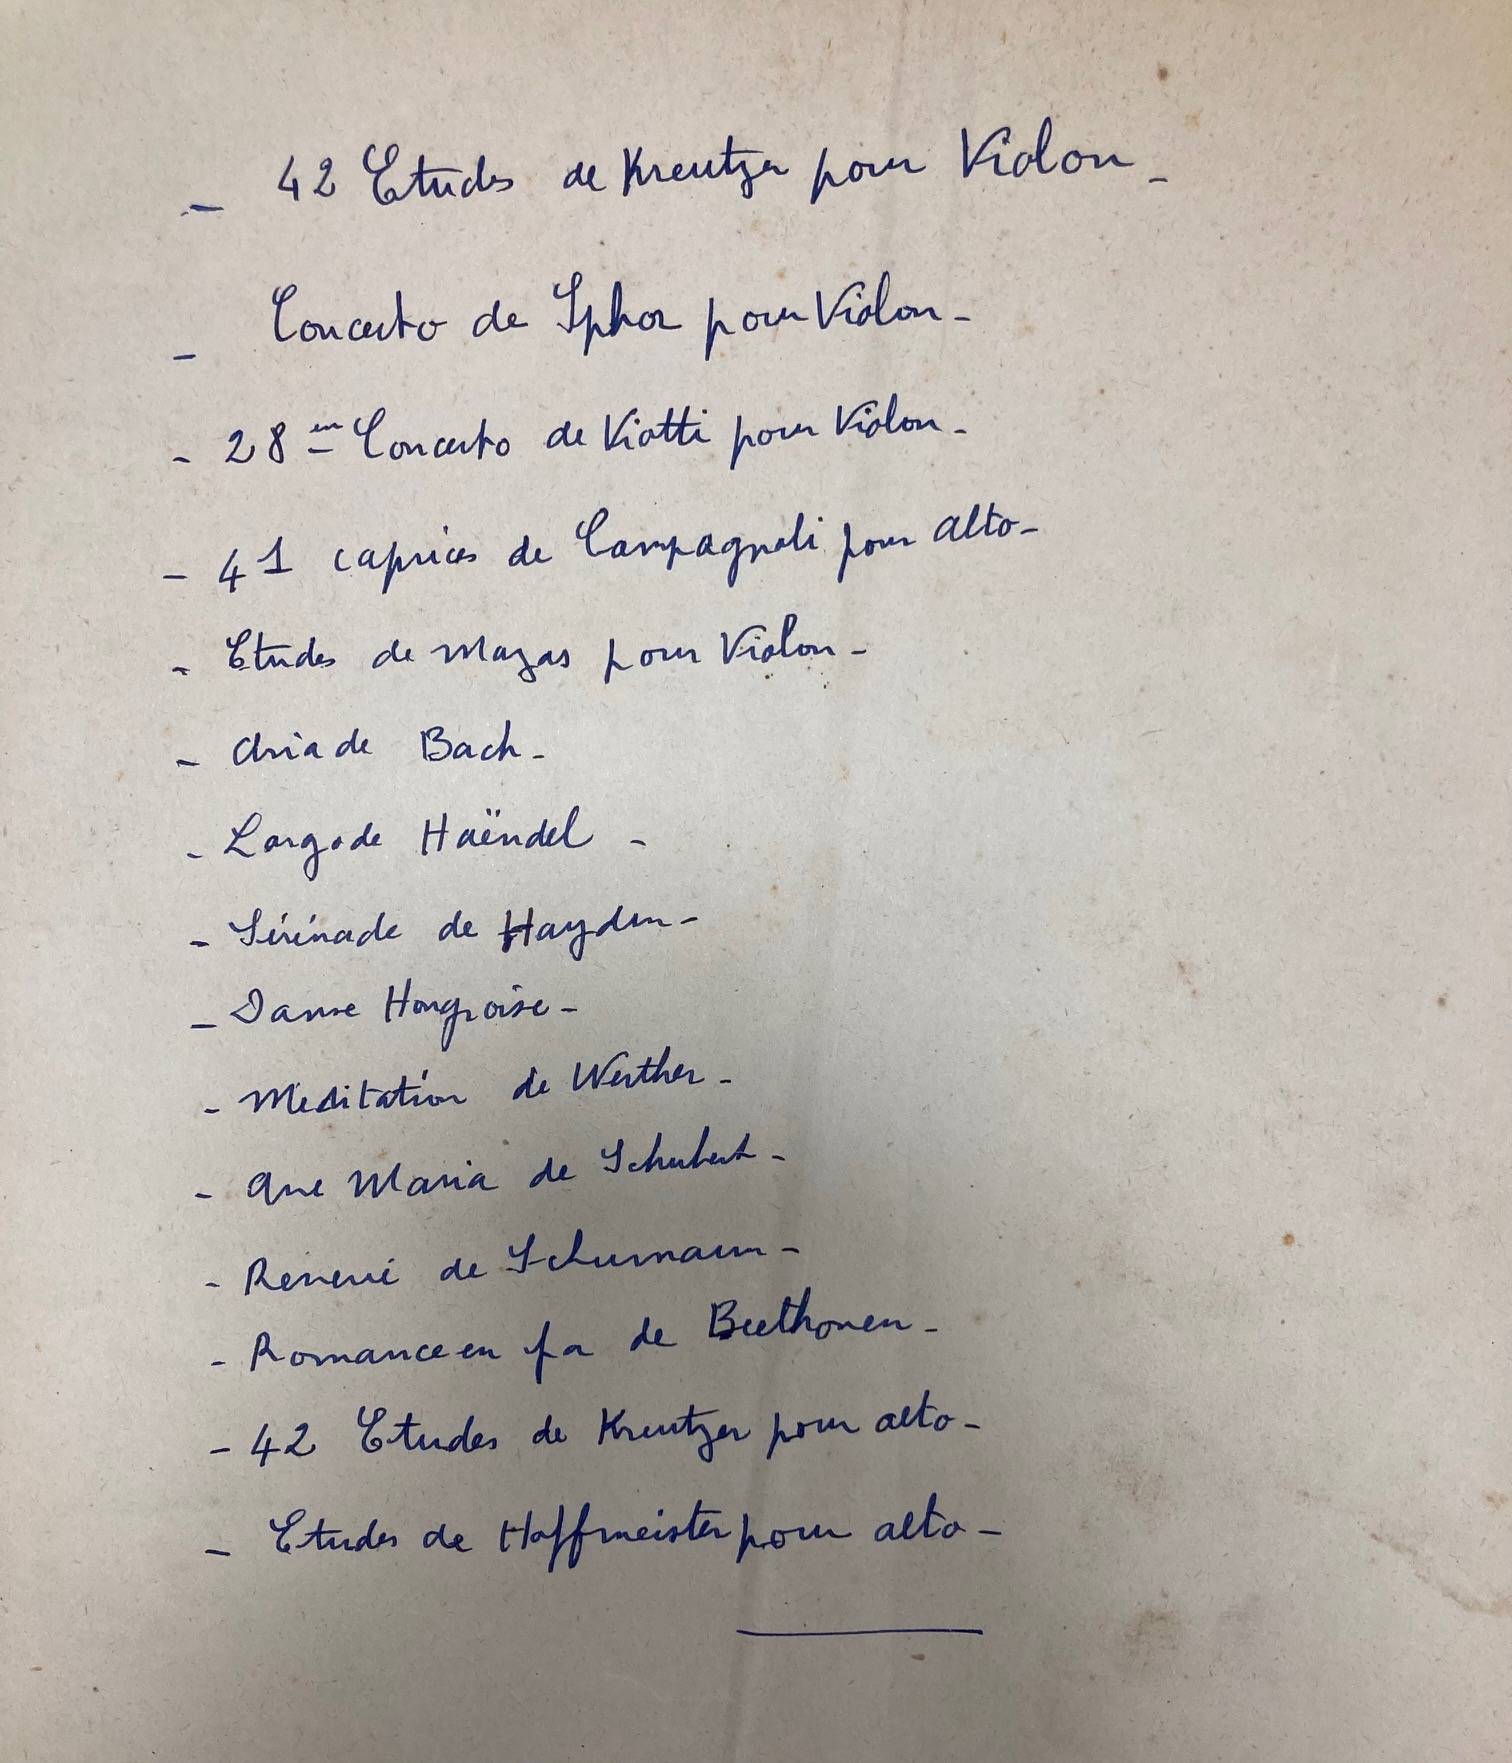 - 42 Etudes de Kreutzer pour Violon -
- Concerto de Sphor pour Violon -
- 28em Concerto de Viotti pour Violon -
- 41 caprices de Campagnoli pour alto -
- Etudes de Mazas pour Violon -
- Aria de Bach -
- Largo de Haëndel -
- Sérénade de Hayden -
- Danse Hongroise -
- Meditation de Werther -
- Ave Maria de Schubert -
- Reverié de Schumann -
- Romance en fa de Beethoven -
- 42 Etudes de Kreutzer pour alto -
- Etudes de Hoffmeister pour alto -